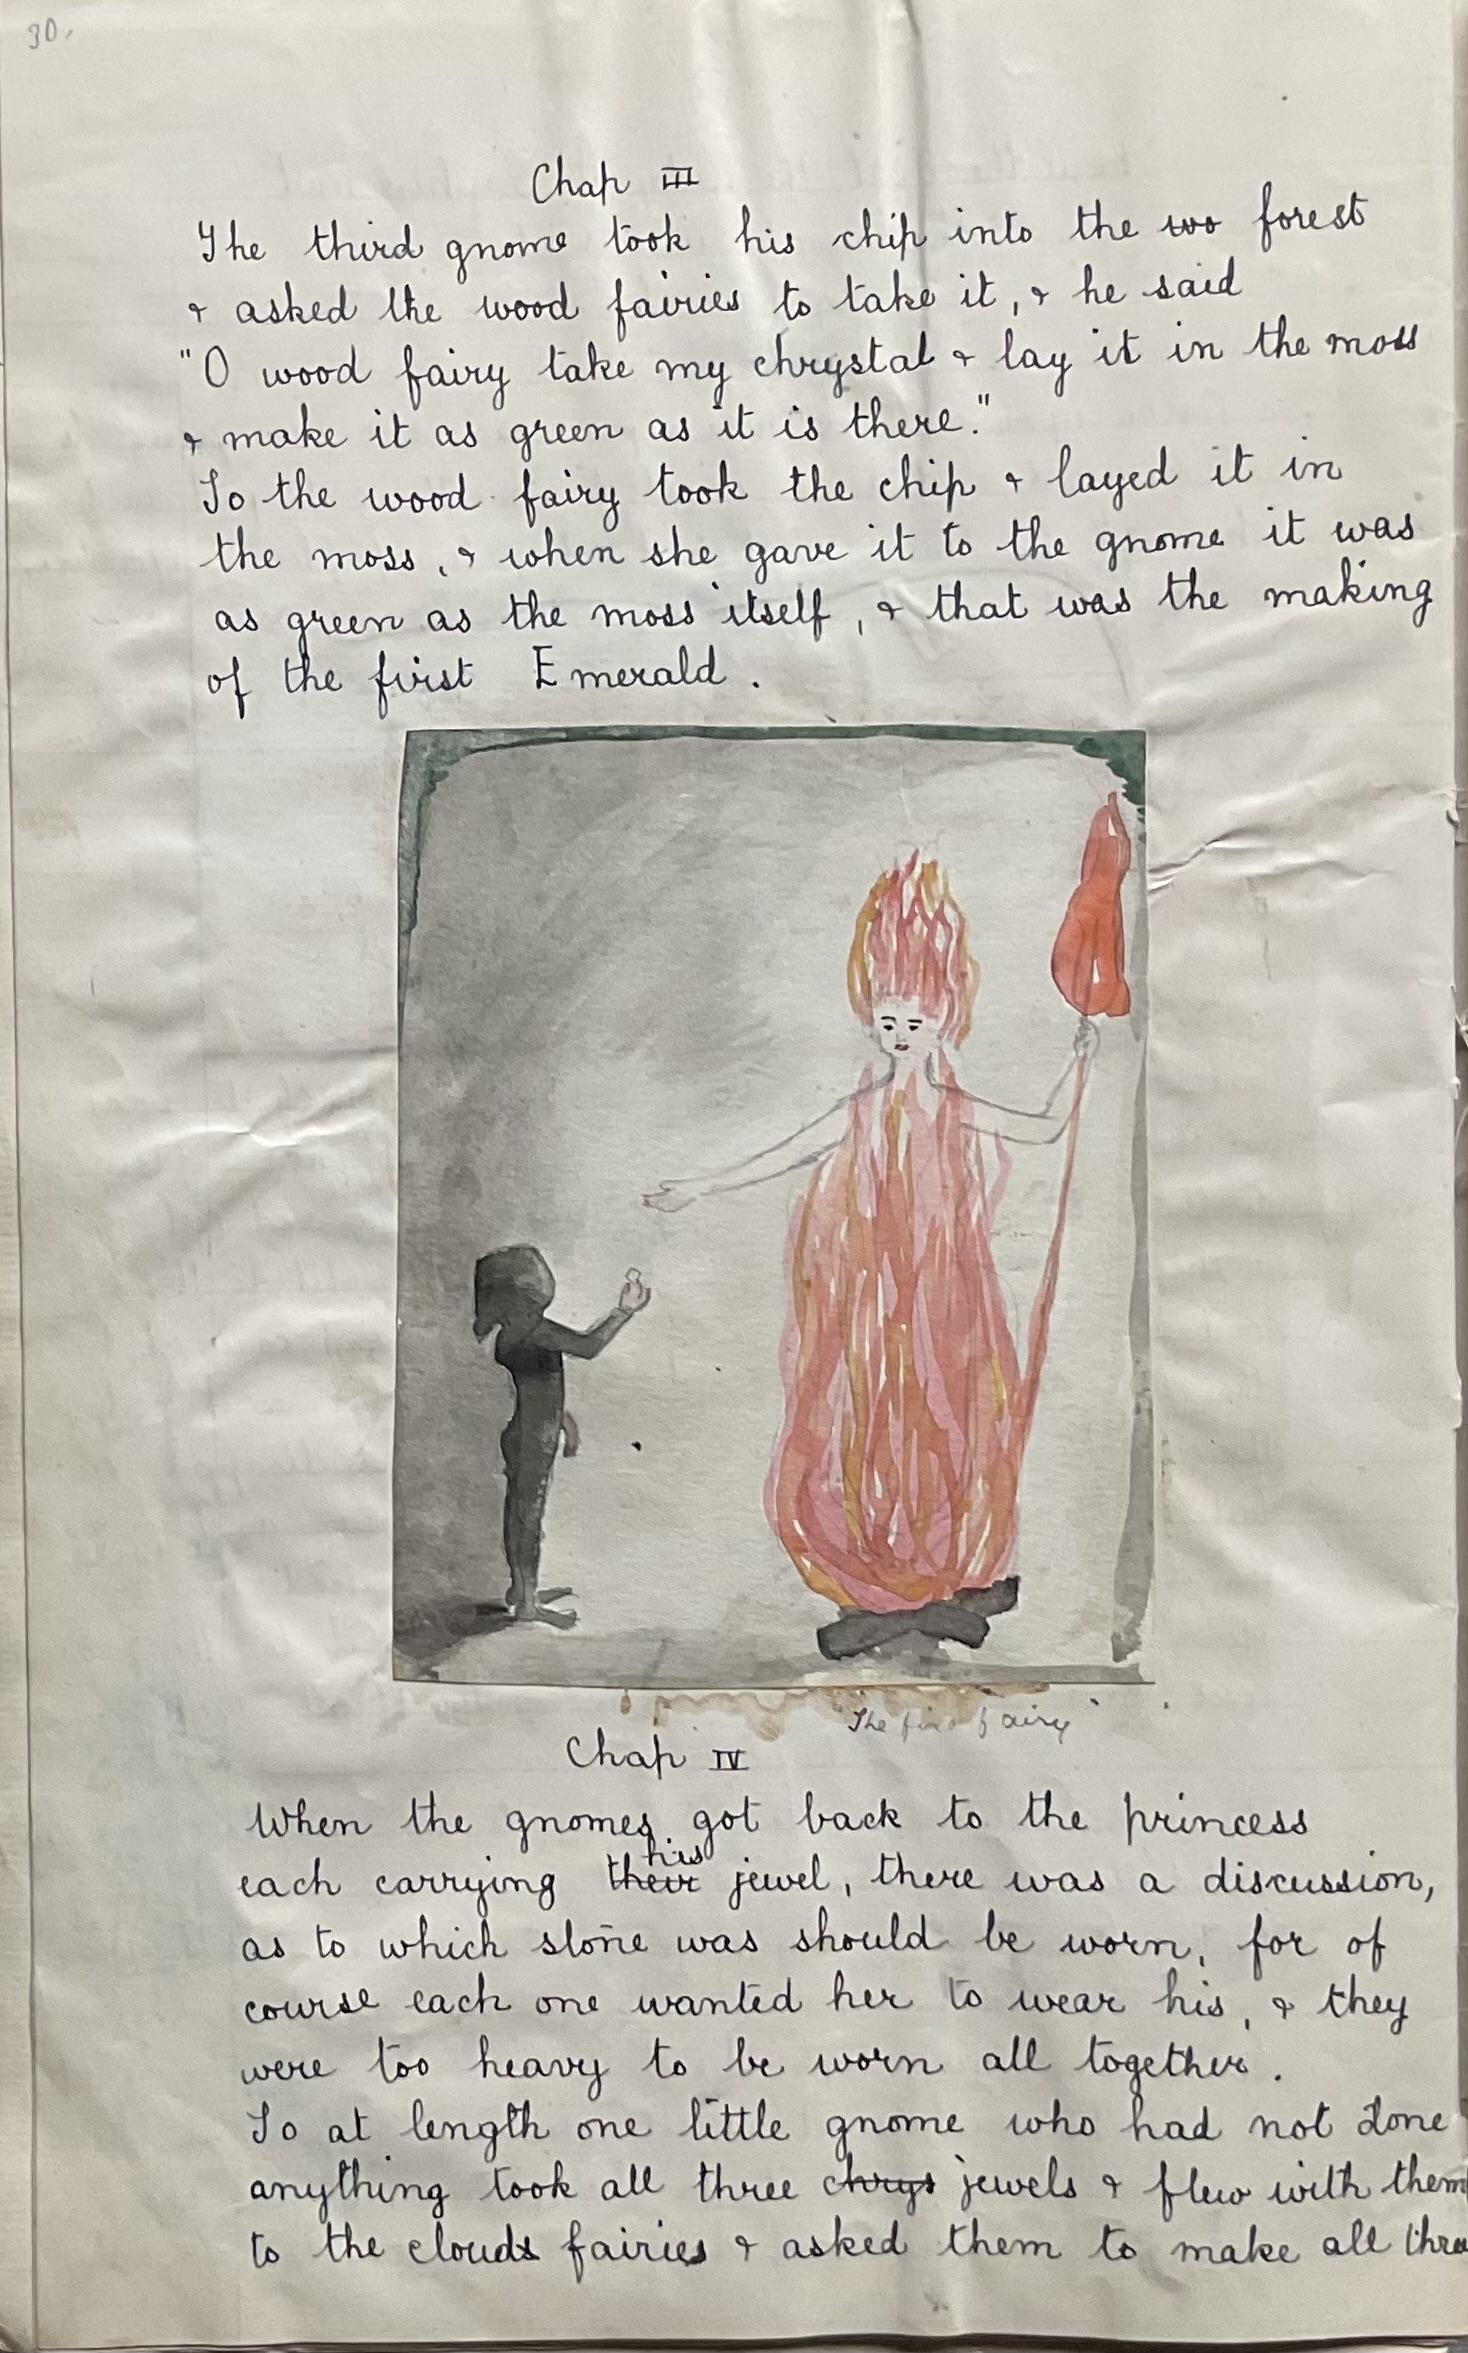 30.
Chap III
The third gnome took his chip into the wo forest
& asked the wood fairies to take it, & he said
"O wood fairy take my chrystal & lay it in the moss
& make it as green as it is there."
So the wood fairy took the chip & layed it in
the moss, & when she gave it to the gnome it was
as green as the moss itself, & that was the making
of the first Emerald.
"The fire fairy"
Chap IV
When the gnomes got back to the princess
his
each carrying their jewel, there was a discussion,
as to which stone was should be worn, for of
course each one wanted her to wear his, & they
were too heavy to be worn all together.
So at length one little gnome who had not done
anything took all three chrys jewels & flew with them
to the clouds fairies & asked them to make all